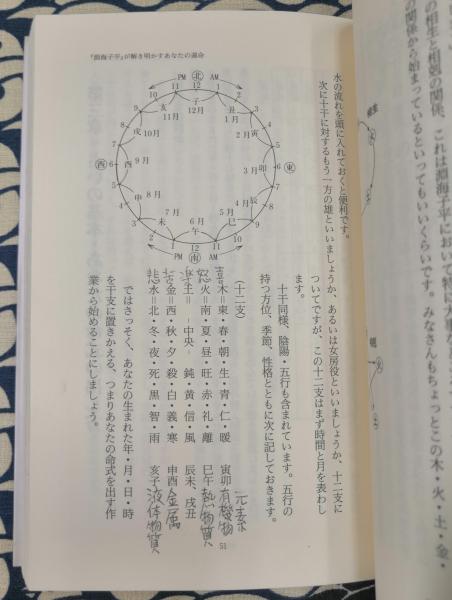 『淵海子平』が解き明かすあなたの運命
水の流れを頭に入れておくと便利です。
次に十干に対するもう一方の雄といいましょうか、あるいは女房役といいましょうか、十二支に
ついてですが、この十二支はまず時間と月を表わし
ます。
十干同様、陰陽・五行も含まれています。五行の
持つ方位、季節、性格とともに次に記しておきます。
(十二支)
元素
喜 木＝東・春・朝・生・青・仁・暖 寅卯 有機物
怒 火＝南・夏・昼・旺・赤・礼・離 巳午 熱物質
楽 土＝ー中央ー 鈍・黄・信・風 辰未、戌丑
苦 金＝西・秋・夕・殺・白・義・寒 申酉 金属
悲 水＝北・冬・夜・死・黒・智・雨 亥子 液体物質
ではさっそく、あなたの生まれた年・月・日・時
を干支に置きかえる、つまりあなたの命式を出す作
業から始めることにしましょう。
PM 北 AM
11 12 1
10 2
9 3
8 4
7 5
西 6 6 東
5 7
4 8
3 9
2 10
1 12 11
PM 南 AM
子 12月
丑 1月
寅 2月
卯 3月
辰 4月
巳 5月
午 6月
未 7月
申 8月
酉 9月
戌 10月
亥 11月
51
の相生と相剋の関係、これは淵海子平において特に大事な
の関係から始まっているといってもいいくらいです。みなさんもちょっとこの木・火・土・金・
相生